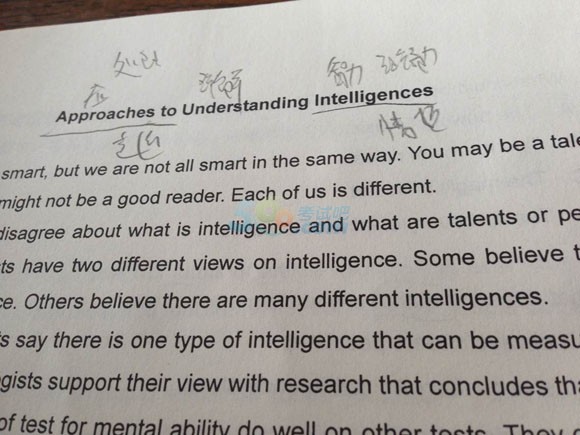 智力
Approaches to Understanding Intelligences
smart, but we are not all smart in the same way. You may be a tale
might not be a good reader. Each of us is different.
disagree about what is intelligence and what are talents or pe
ts have two different views on intelligence. Some believe t
ce. Others believe there are many different intelligences.
ts say there is one type of intelligence that can be measu
gists support their view with research that concludes tha
of test for mental ability do well on other tests. They